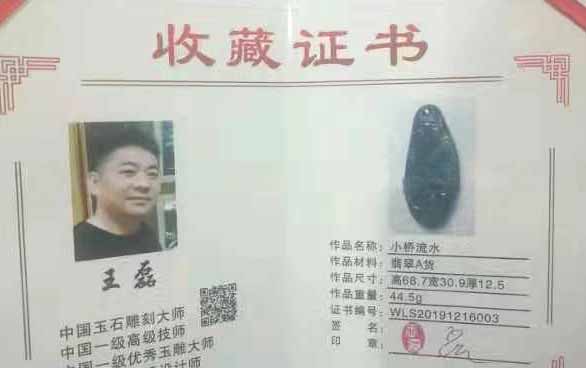 收藏证书
王磊
中国玉石雕刻大师
中国一级高级技师
中国一级优秀玉雕大师
设计师
作品名称：小桥流水
作品材料：翡翠A货
作品尺寸：高66.7宽30.9厚12.5
作品重量：44.5g
证书编号：WLS20191216003
签名：
印章：